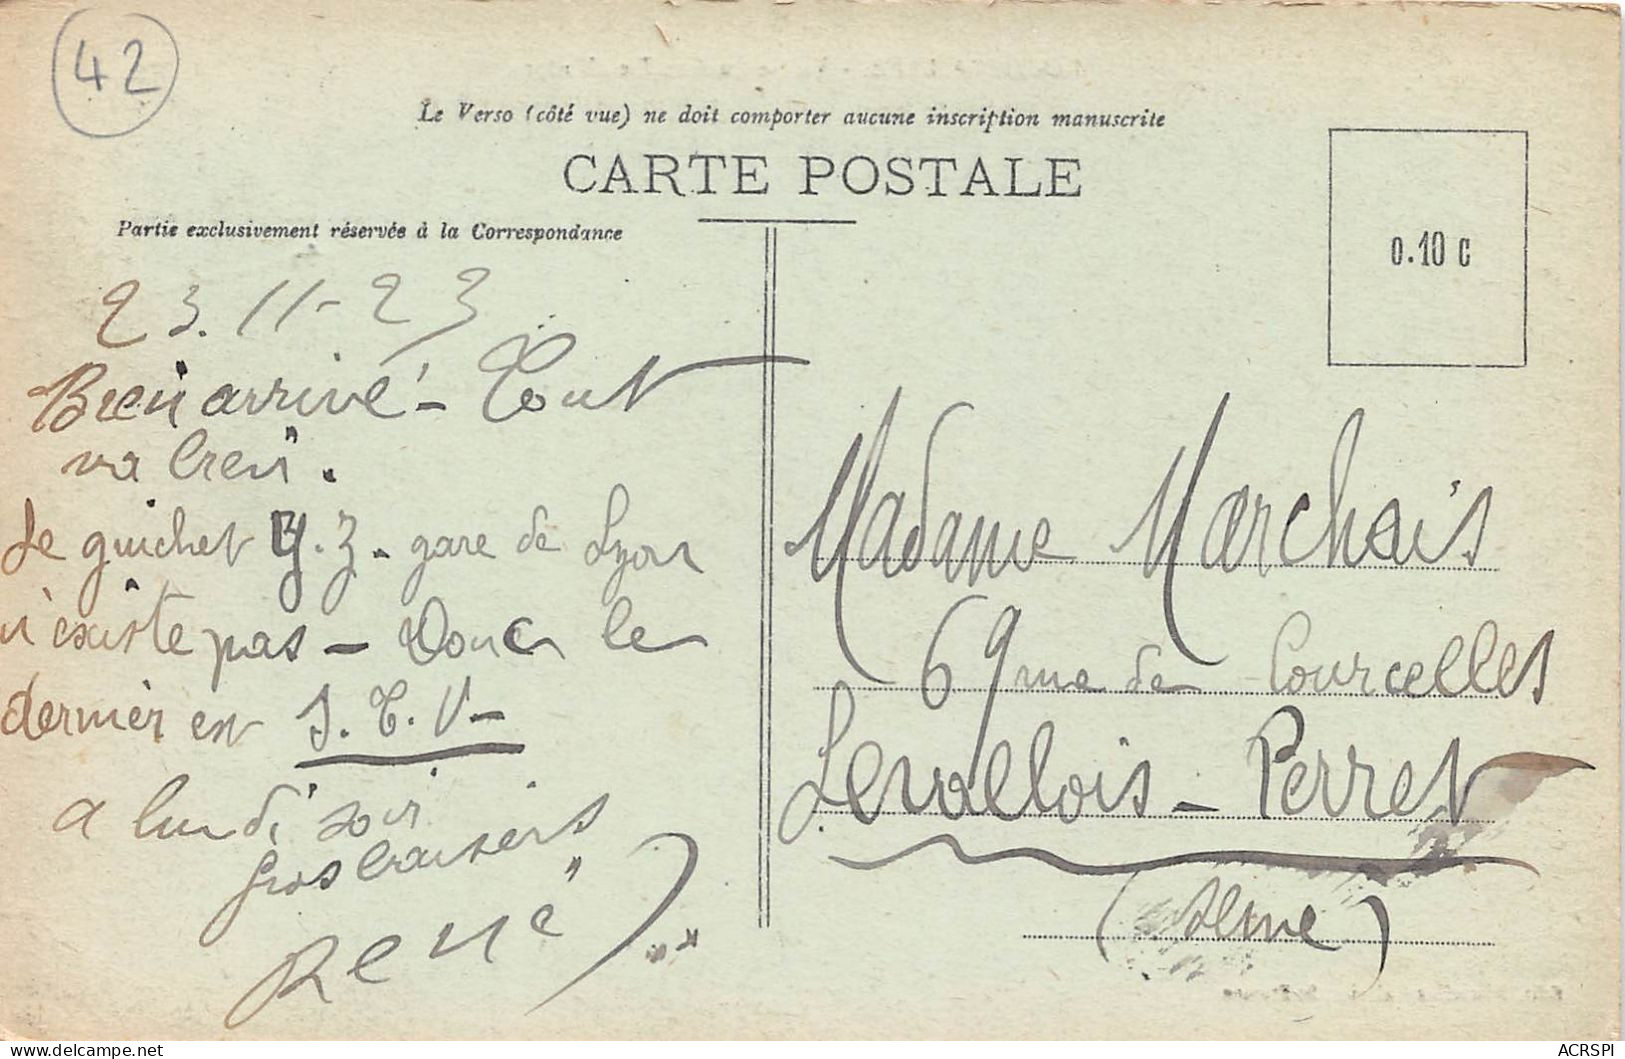 42
Le Verso (côté vue) ne doit comporter aucune inscription manuscrite
CARTE POSTALE
Partie exclusivement réservée à la Correspondance
0.10 C
23.11-23
Bien arrivé - Tout
va bien.
Le guichet Y.3. gare de Lyon
n'existe pas - Donc le
dernier est J.T.V-
a lundi soir
Gros baisers
René
Madame Marchais
69 rue de Courcelles
Levallois-Perret
(Seine)
ACRSPI